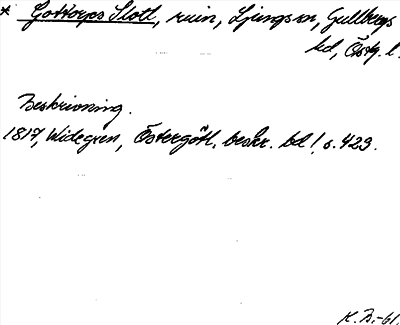 * Gottorps Slott, ruin, Ljungs sn, Gullbergs
hd, Östg. l.
Beskrivning.
1817, Widegren, Östergötl. beskr. bd 1, s. 423.
K.B.-61.